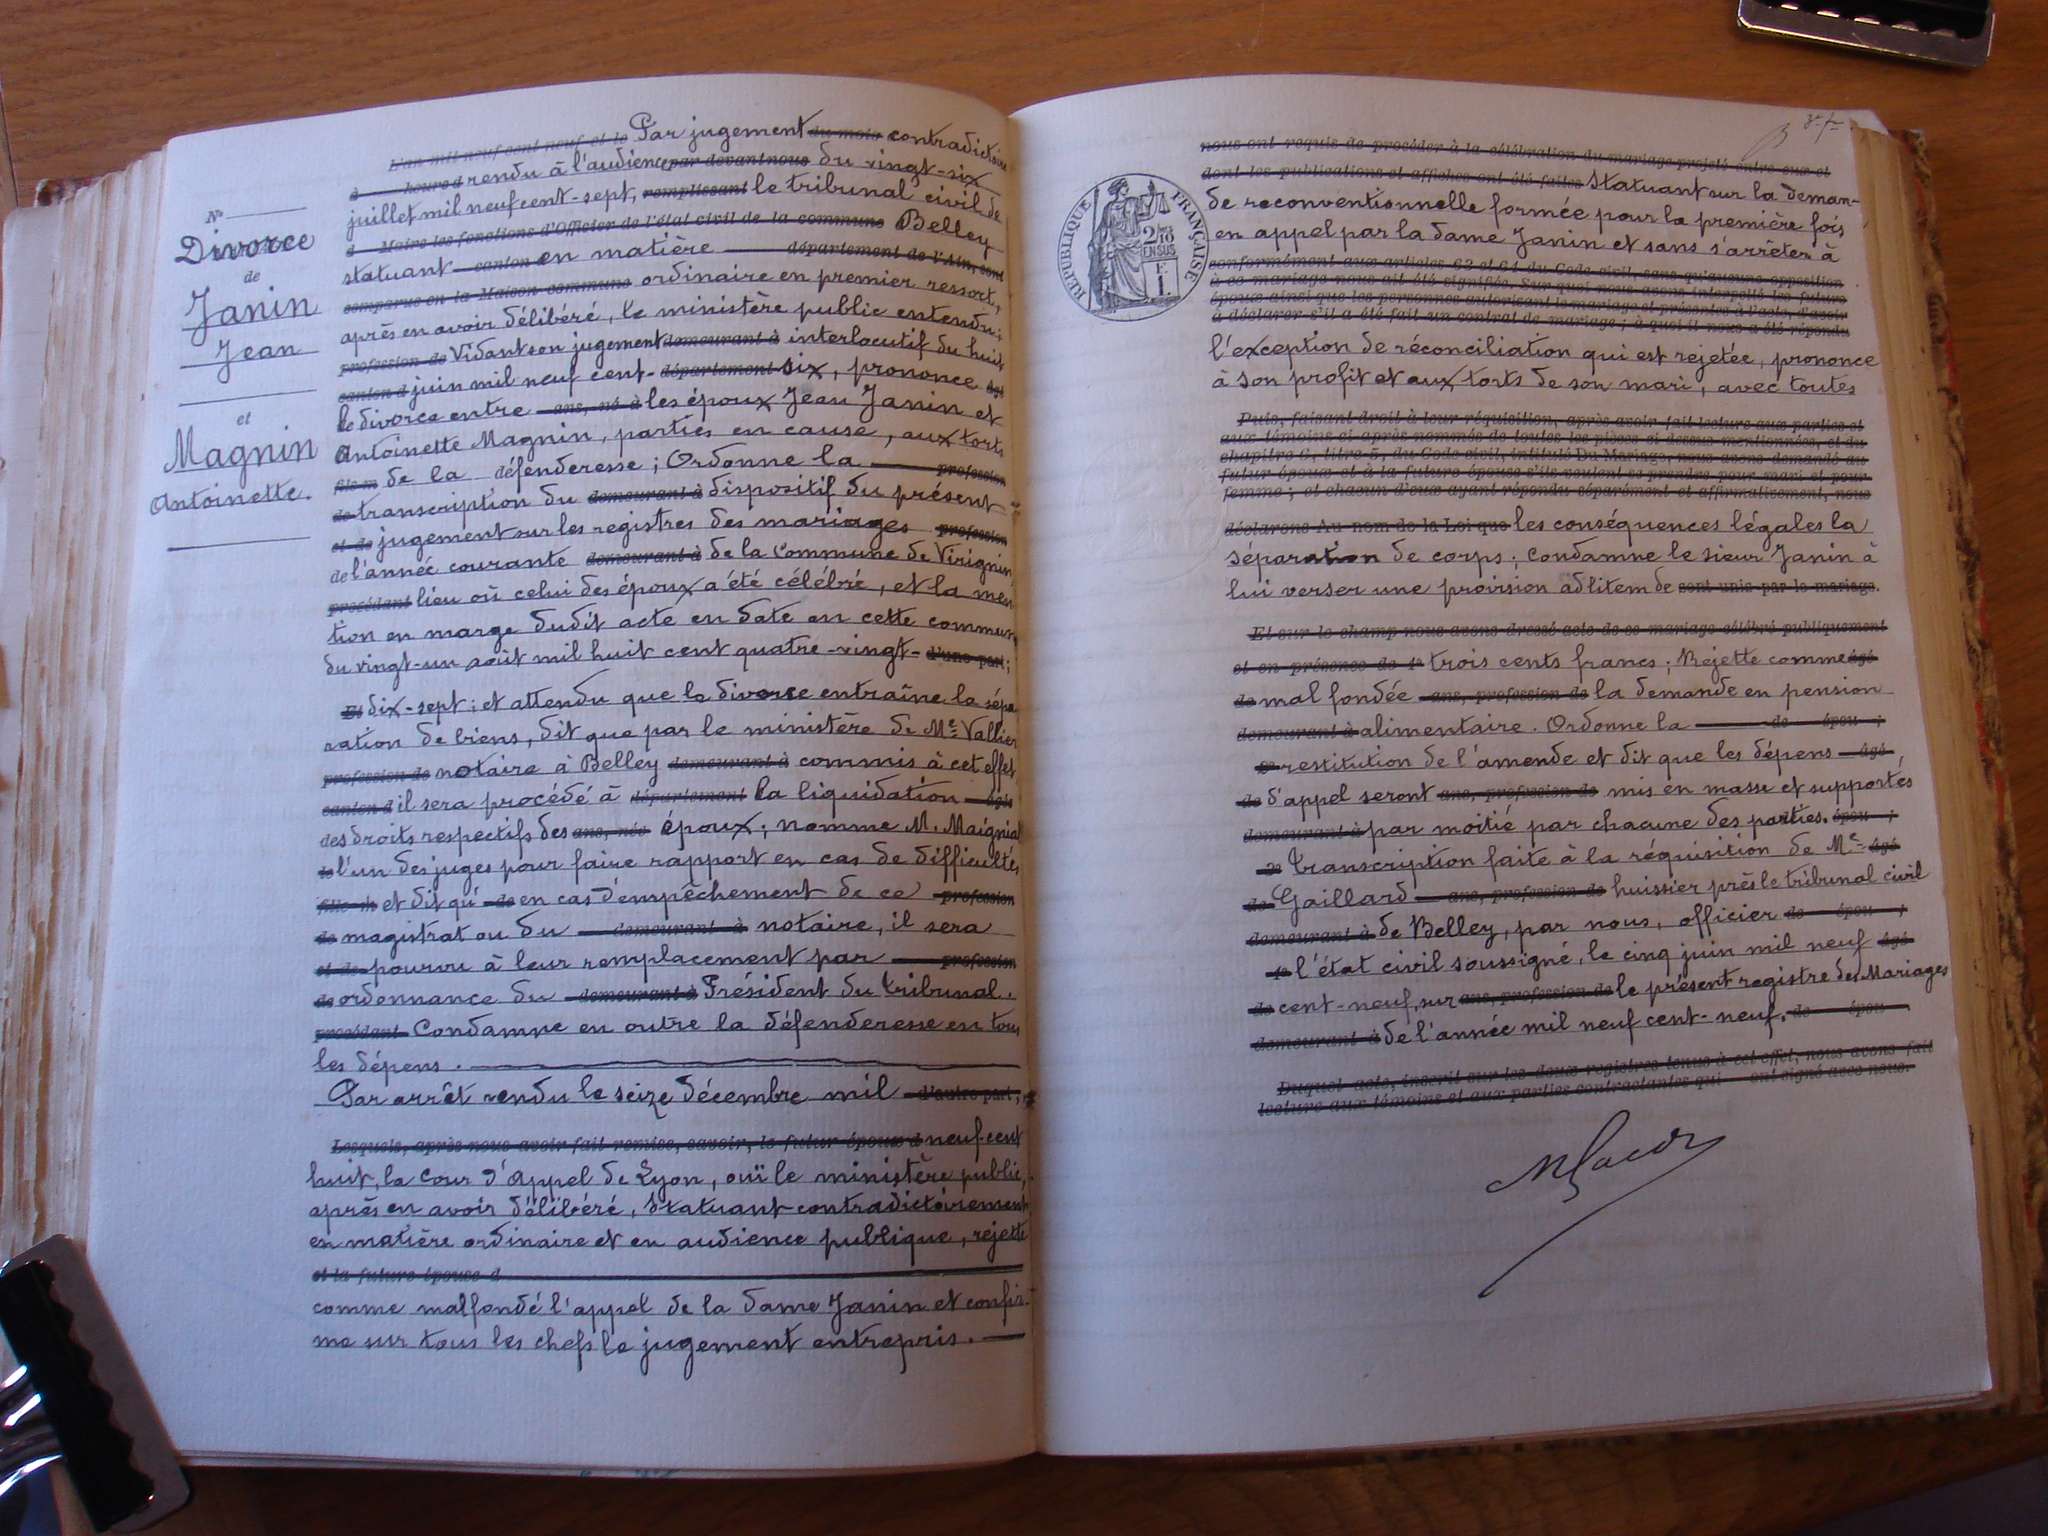 N°
Divorce
de
Janin
Jean
et
Magnin
Antoinette.
L'an mil neuf cent neuf et le Par jugement du mois contradictoire
à heures d rendu à l'audience par devant nous du vingt-six
juillet mil neuf cent-sept, remplissant le tribunal civil de
d Maire les fonctions d'Officier de l'état civil de la commune Belley
statuant canton en matière département de l'Ain, sont
comparus en la Maison commune ordinaire en premier ressort,
après en avoir délibéré, le ministère public entendu;
profession de Vidant son jugement demeurant à interlocutif du huit
canton d juin mil neuf cent- département six, prononce âgé
le divorce entre ans, né à les époux Jean Janin et
Antoinette Magnin, parties en cause, aux torts
fils m de la défenderesse; Ordonne la profession
de transcription du demeurant à dispositif du présent
et de jugement sur les registres des mariages profession
de l'année courante demeurant à de la Commune de Virignin,
procédant lieu où celui des époux a été célébré, et la men
tion en marge dudit acte en date en cette commune
du vingt-un août mil huit cent quatre-vingt- d'une part;
Et dix-sept; et attendu que le divorce entraîne la sépa
ration de biens, dit que par le ministère de Me Vallier
profession de notaire à Belley demeurant à commis à cet effet
canton d il sera procédé à département la liquidation âgée
des droits respectifs des ans, née époux; nomme M. Maignial
à l'un des juges pour faire rapport en cas de difficultés
fille m et dit qu' de en cas d'empêchement de ce profession
de magistrat ou du demeurant à notaire, il sera
et de pourvu à leur remplacement par profession
de ordonnance du demeurant à Président du tribunal.
procédant Condamne en outre la défenderesse en tous
les dépens.
Par arrêt rendu le seize décembre mil d'autre part;
Lesquels, après nous avoir fait remise, savoir, le futur époux d neuf cent
huit, la Cour d'Appel de Lyon, ouï le ministère public,
après en avoir délibéré, statuant contradictoirement
en matière ordinaire et en audience publique, rejette
et la future épouse d
comme mal fondé l'appel de la dame Janin et confir-
me sur tous les chefs le jugement entrepris.
RÉPUBLIQUE FRANÇAISE
2/10
EN SUS
1 F.
nous ont requis de procéder à la célébration du mariage projeté entre eux et
dont les publications et affiches ont été faites Statuant sur la deman-
de reconventionnelle formée pour la première fois
en appel par la dame Janin et sans s'arrêter à
conformément aux articles 63 et 64 du Code civil, sans qu'aucune opposition
à ce mariage nous ait été signifiée. Sur quoi nous avons interpellé les futurs
époux ainsi que les personnes autorisant le mariage et présentes à l'acte, d'avoir
à déclarer s'il a été fait un contrat de mariage; à quoi il nous a été répondu
l'exception de réconciliation qui est rejetée, prononce
à son profit et aux torts de son mari, avec toutes
Puis, faisant droit à leur réquisition, après avoir fait lecture aux parties et
aux témoins ci-après nommés de toutes les pièces ci-dessus mentionnées, et du
chapitre 6, titre 5, du Code civil, intitulé Du Mariage, nous avons demandé au
futur époux et à la future épouse s'ils veulent se prendre pour mari et pour
femme; et chacun d'eux ayant répondu séparément et affirmativement, nous
déclarons Au nom de la Loi que les conséquences légales la
séparation de corps; Condamne le sieur Janin à
lui verser une provision ad litem de sont unis par le mariage.
Et sur le champ nous avons dressé acte de ce mariage célébré publiquement
et en présence de 1° trois cents francs; Rejette comme âgé
de mal fondée ans, profession de la demande en pension
demeurant à alimentaire. Ordonne la de épou ;
2° restitution de l'amende et dit que les dépens âgé
de d'appel seront ans, profession de mis en masse et supportés
demeurant à par moitié par chacune des parties. épou ;
3° Transcription faite à la réquisition de Me âgé
de Gaillard ans, profession de huissier près le tribunal civil
demeurant à de Belley, par nous, officier de épou ;
4° l'état civil soussigné, le cinq juin mil neuf âgé
de cent-neuf, sur ans, profession de le présent registre des Mariages
demeurant à de l'année mil neuf cent-neuf. de épou
Duquel acte, inscrit sur les deux registres tenus à cet effet, nous avons fait
lecture aux témoins et aux parties contractantes qui ont signé avec nous.